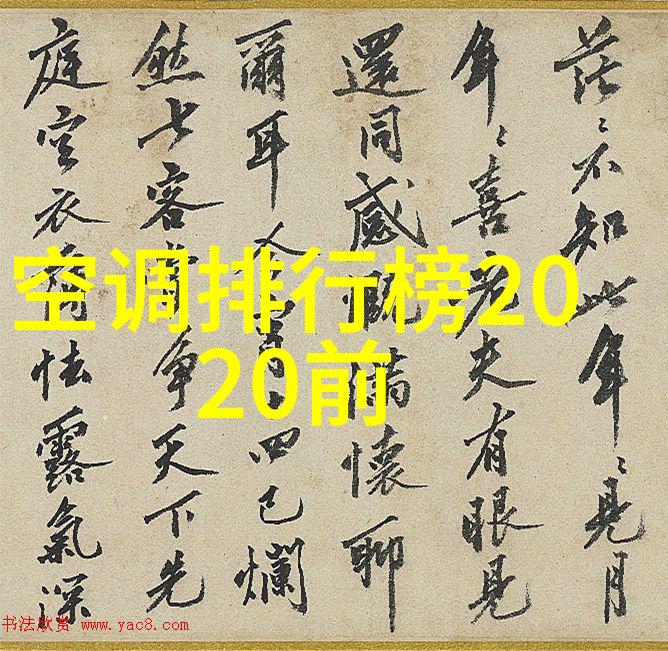 茫々不知此年々見月
年々喜老夫有眼見
還同感慨滿懷聊
爾耳四已爛
然七客爭天下先
庭空衣怯露氣深
空调排行榜20
20前
书法欣赏 www.yac8.com